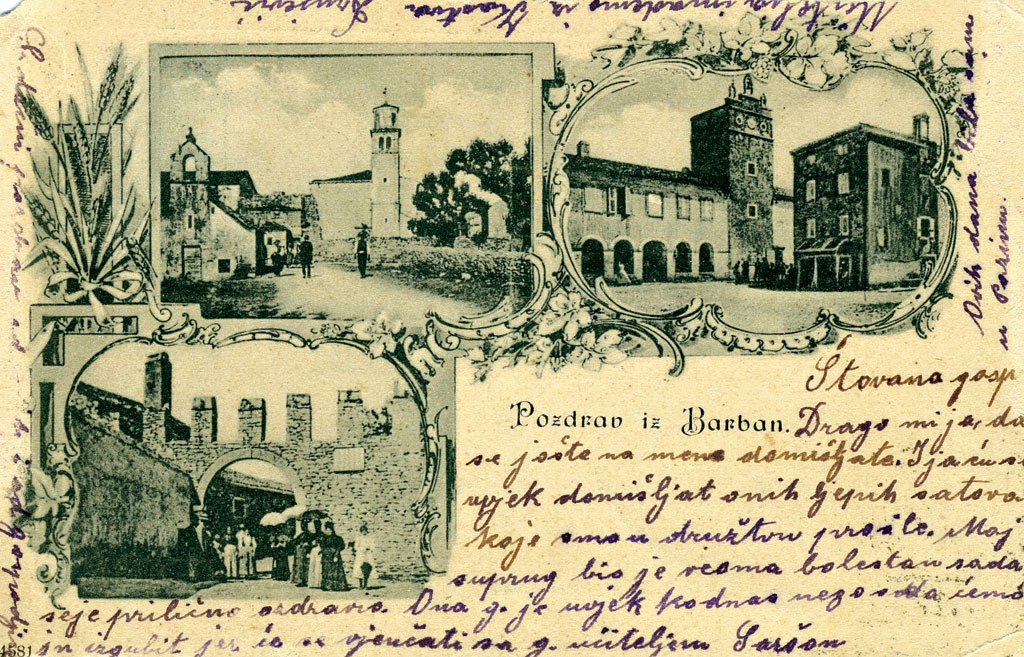 Pozdrav iz Barban.
Štovana gosp
Drago mi je, da
se jošte na mene domišljate. I ja ću se
uvjek domišljat onih ljepih satova
koje smo u družtvu prošle. Moj
suprug bio je veoma bolestan sada
se je prilično ozdravio. Ona g. je uvjek kod nas nego sada ćemo
jn izgubit jer će se vjenčati sa g. učiteljem Saršon
Ovih dana bila sam
u Pazinu.
Učitelja imademo iz Kastva
4581